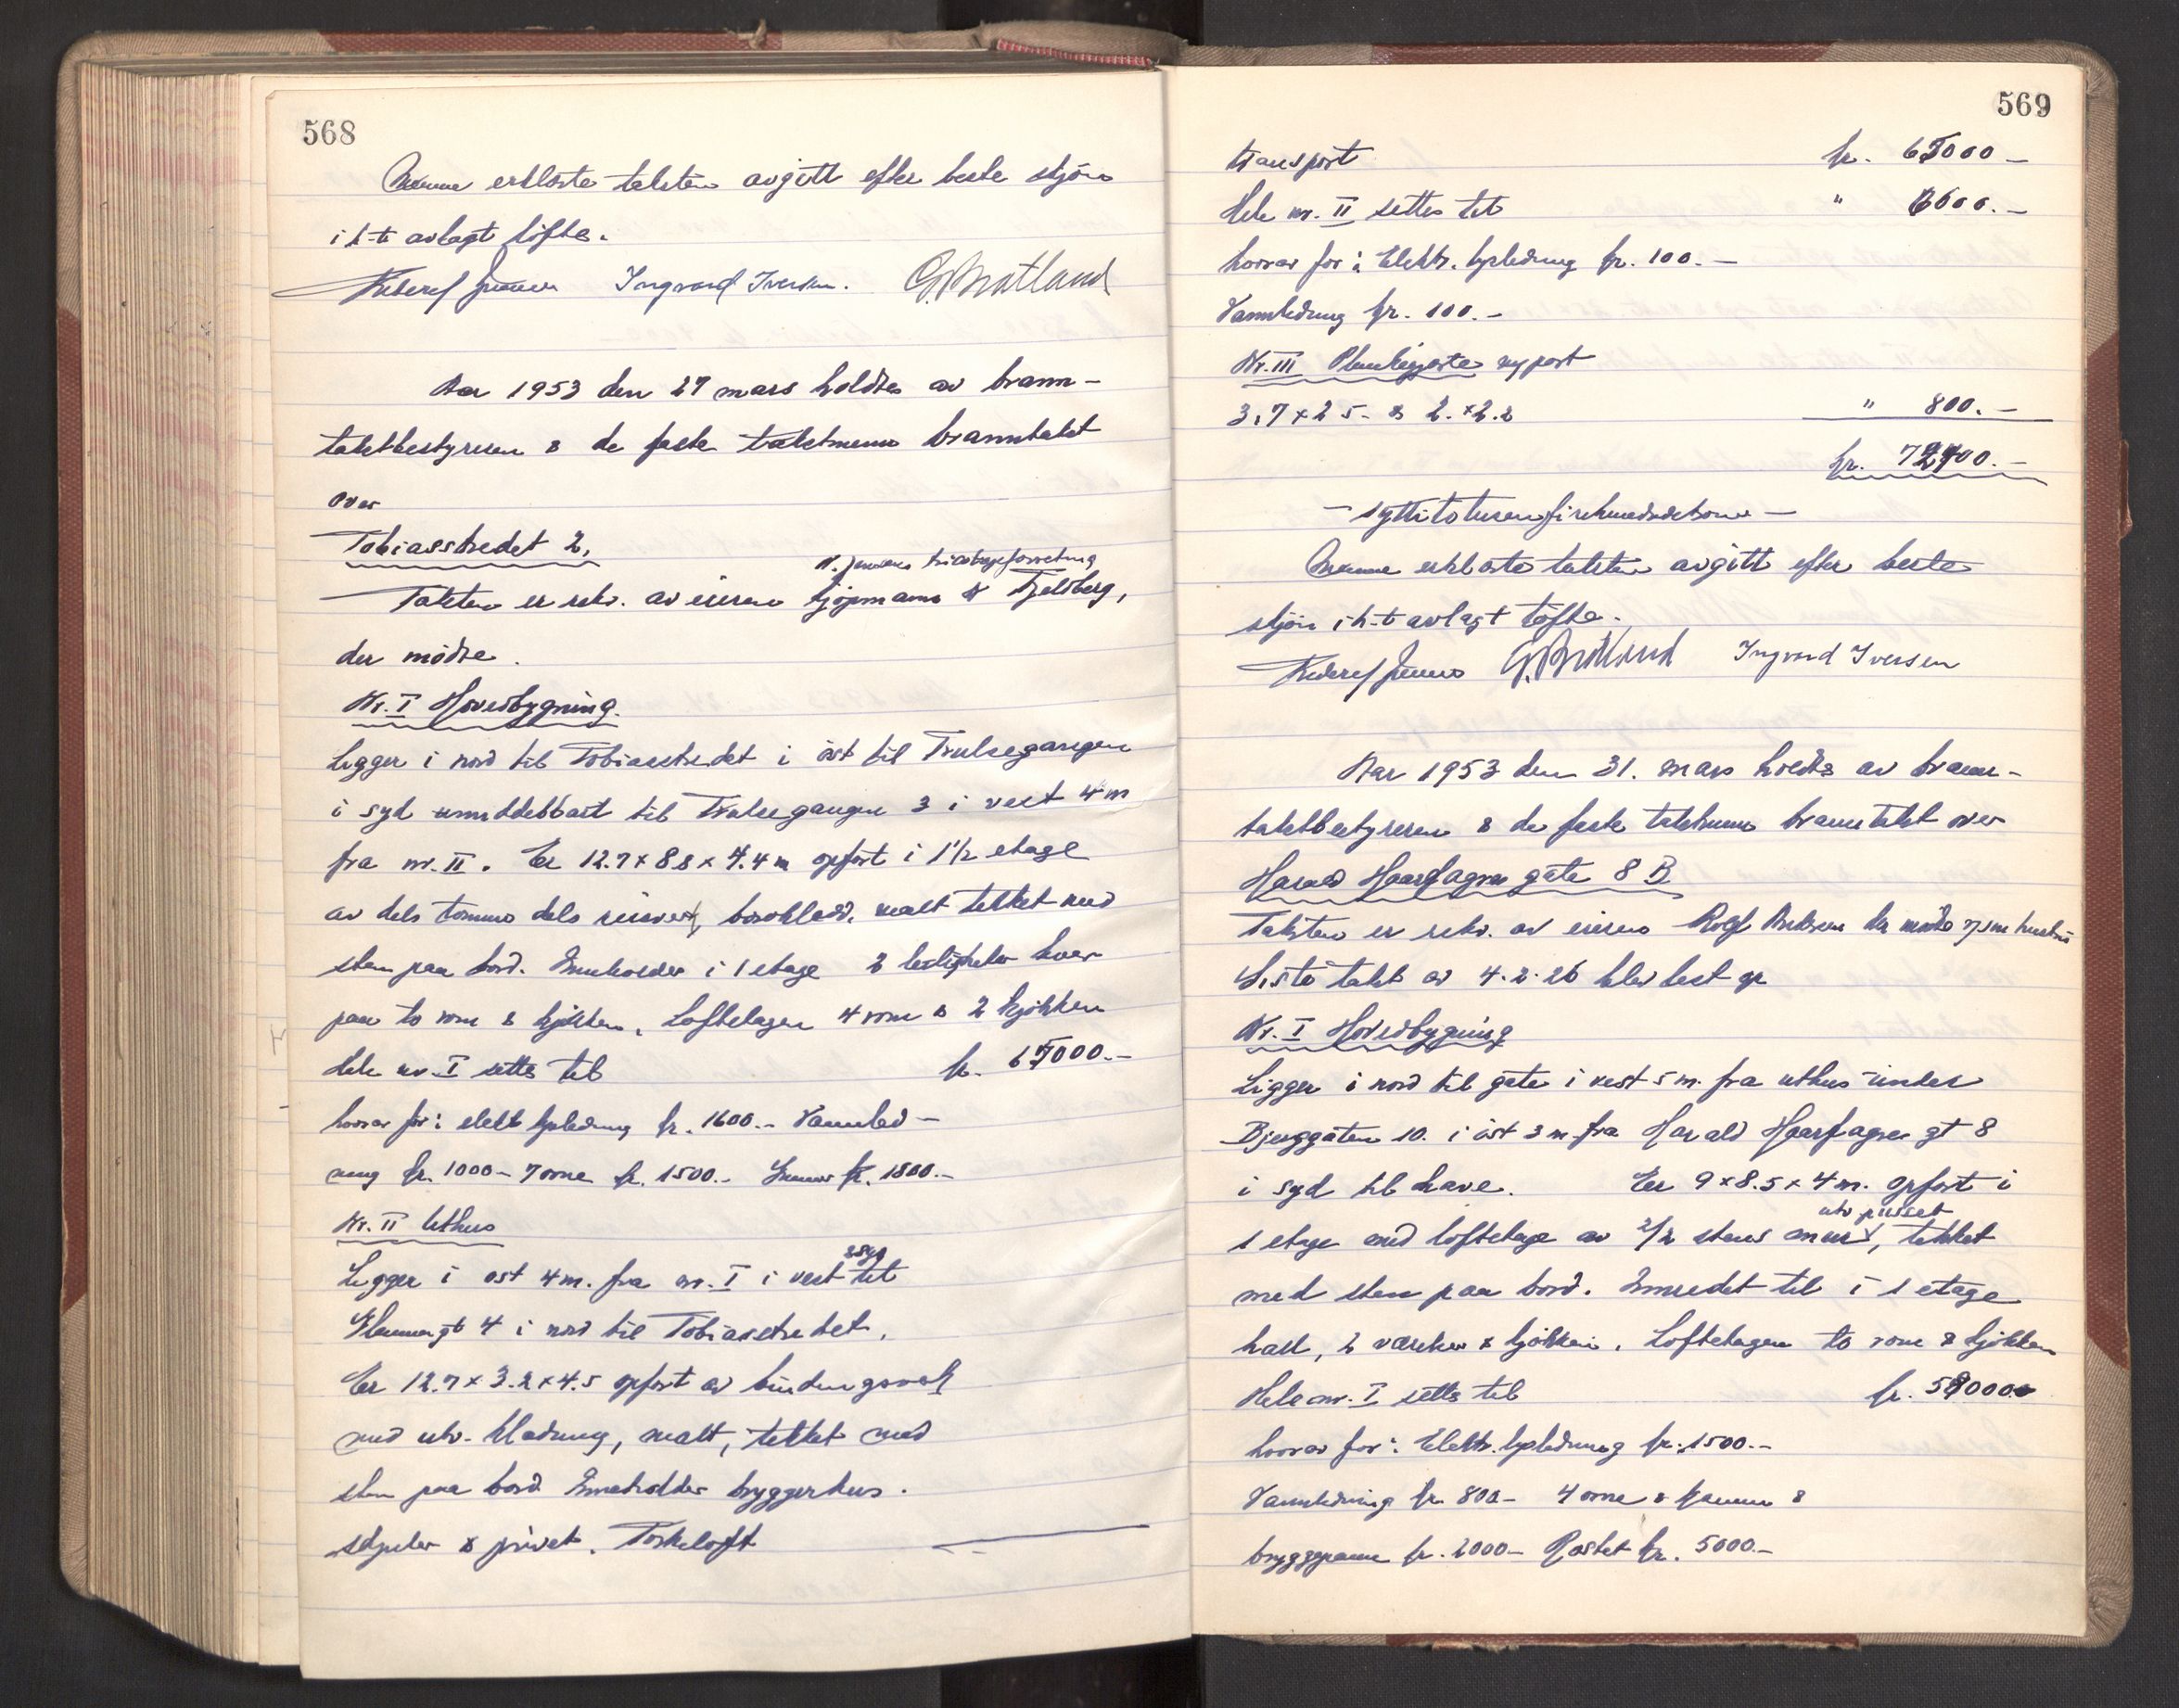 568
erklærte taksten avgitt efter beste skjön
i h-t avlagt löfte.
Ingvard Iversen. G. Bratland
Aar 1953 den 27 mars holdtes av brann-
takstbestyreren & de faste takstmenn branntakst
over
Tobiasstredet 2,
forretning
Taksten er rekv. av eieren kjöpmann Fjeldberg,
der mödte.
Nr. I Hovedbygning.
Ligger i nord til Tobiasstredet i öst til Trulsegangen
i syd umiddelbart til Trulsegangen 3 i vest 4 m
fra nr. II. Er 12.7 x 8.8 x 4.4 m opfört i 1 1/2 etage
av dels tömmer dels reisverk, bordkledd, malt tekket med
sten paa bord. Inneholder i 1 etage 2 leiligheter hver
paa to rom & kjökken. Loftetagen 4 rom & 2 kjökken
Hele nr. I settes til kr. 65000.-
hvorav for: elekt lysledning kr. 1600.- Vannled-
ning kr. 1000- 7 ovne kr. 1500.- kr. 1800.-
Nr. II Uthus
Ligger i öst 4 m. fra nr. I i vest til
4 i nord til Tobiasstredet.
Er 12.7 x 3.2 x 4.5 opfört av bindingsverk
med utv. kledning, malt, tekket med
sten paa bord Inneholder bryggerhus.
skjuler & privet. Törkeloft
569
transport kr. 65000-
Hele nr. II settes til " 6600.-
hvorav for: Elektr. lysledning kr. 100.-
Vannledning kr. 100.-
Nr. III Plankegjerde m/port
3.7 x 2.5 - & 2. x 2.2 " 800.-
kr. 72400.-
- syttitotusenfirehundredekroner -
erklærte taksten avgitt efter beste
skjön i h-t avlagt löfte.
G. Bratland Ingvard Iversen
Aar 1953 den 31. mars holdtes av brann-
takstbestyreren & de faste takstmenn branntakst over
Harald Haarfagres gate 8 B
Taksten er rekv. av eieren Rolf der mödte v/sin hustru
Siste takst av 4.2.26 blev lest op
Nr. I Hovedbygning
Ligger i nord til gate i vest 5 m. fra uthus under
Bjerggaten 10. i öst 3 m fra Harald Haarfagres gt 8
i syd til have. Er 9 x 8.5 x 4 m. opfört i
utv pusset
1 etage med loftetage av 2/2 stens mur, tekket
med sten paa bord. Innredet til i 1 etage
hall, 2 værelser & kjökken. Loftetagen to rom & kjökken
Hele nr. I settes til kr. 59000.
hvorav for: Elektr. lysledning kr. 1500.-
Vannledning kr. 800- 4 ovne & kamin &
bryggepanne kr. 2000- Pusset kr. 5000.-